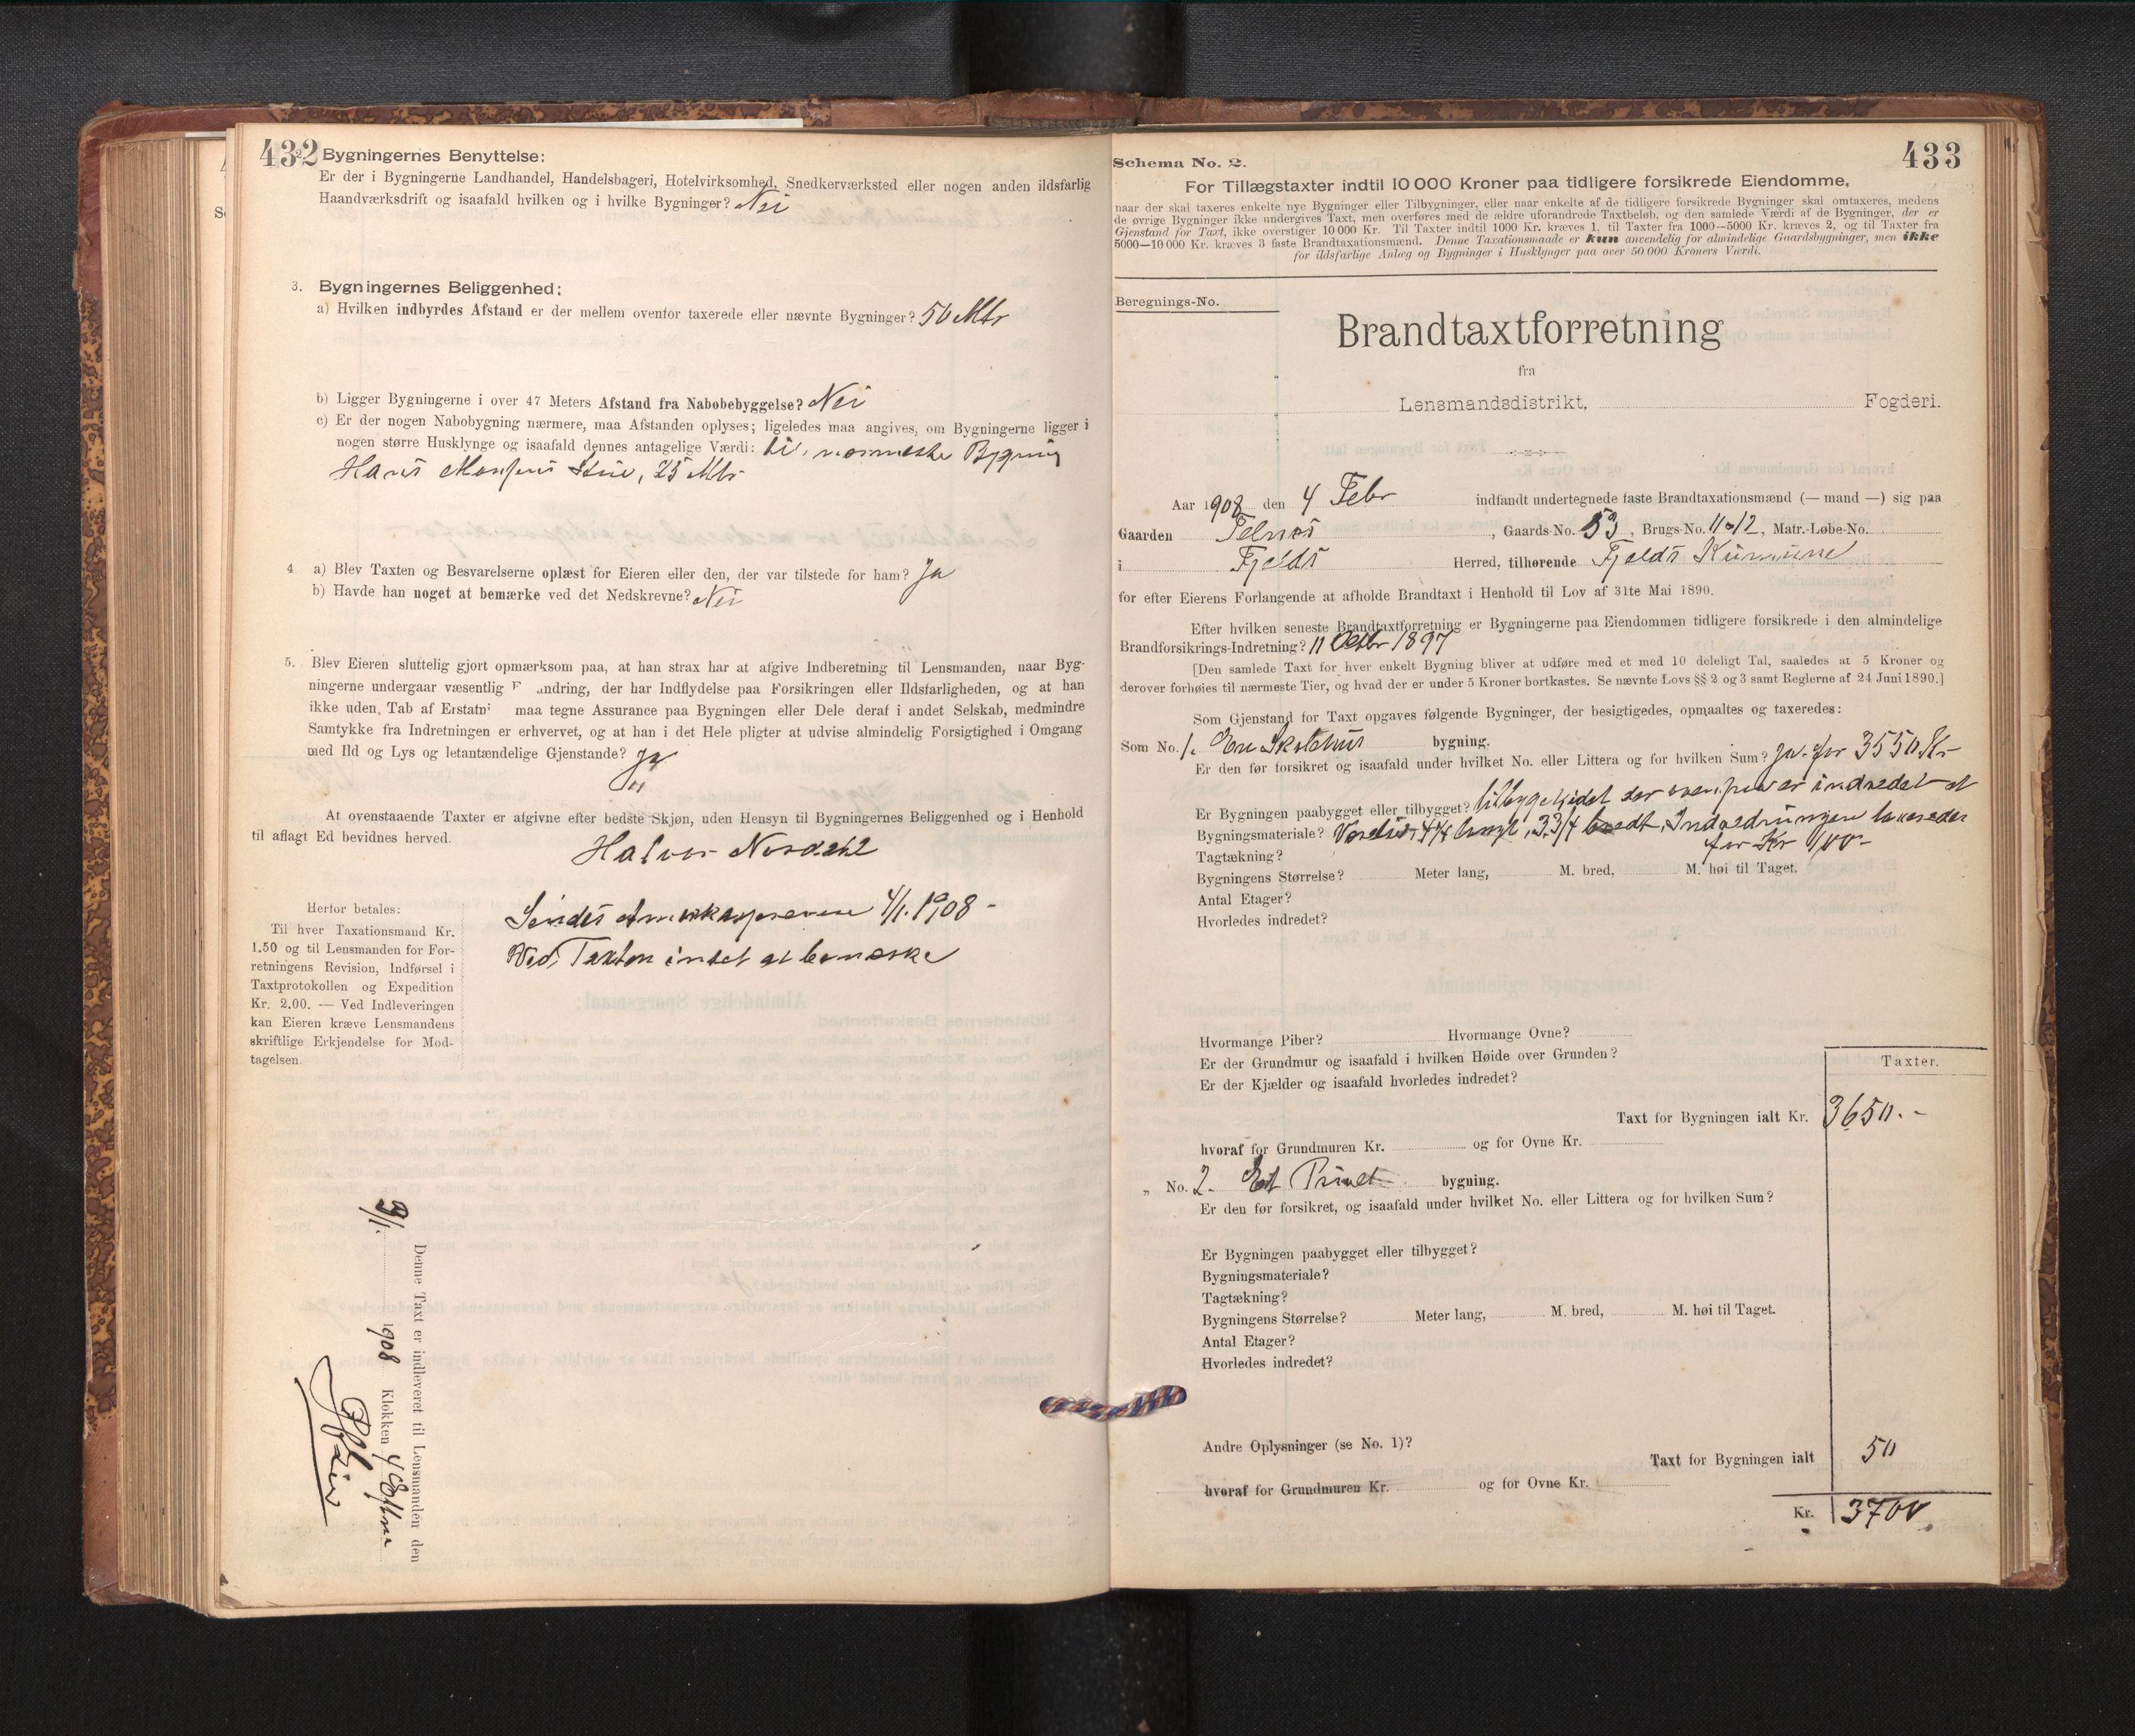 432
Bygningernes Benyttelse:
Er der i Bygningerne Landhandel, Handelsbageri, Hotelvirksomhed, Snedkerværksted eller nogen anden ildsfarlig
Haandværksdrift og isaafald hvilken og i hvilke Bygninger? Nei
3. Bygningernes Beliggenhed:
a) Hvilken indbyrdes Afstand er der mellem ovenfor taxerede eller nævnte Bygninger? 50 Mtr
b) Ligger Bygningerne i over 47 Meters Afstand fra Nabobebyggelse? Nei
c) Er der nogen Nabobygning nærmere, maa Afstanden oplyses; ligeledes maa angives, om Bygningerne ligger i
nogen større Husklynge og isaafald dennes antagelige Værdi: til nærmeste Bygning
Hans Monsens 25 Mtr
4. a) Blev Taxten og Besvarelserne oplæst for Eieren eller den, der var tilstede for ham? Ja
b) Havde han noget at bemærke ved det Nedskrevne? Nei
5. Blev Eieren sluttelig gjort opmærksom paa, at han strax har at afgive Indberetning til Lensmanden, naar Byg-
ningerne undergaar væsentlig F andring, der har Indflydelse paa Forsikringen eller Ildsfarligheden, og at han
ikke uden Tab af Erstatn maa tegne Assurance paa Bygningen eller Dele deraf i andet Selskab, medmindre
Samtykke fra Indretningen er erhvervet, og at han i det Hele pligter at udvise almindelig Forsigtighed i Omgang
med Ild og Lys og letantændelige Gjenstande? Ja
At ovenstaaende Taxter er afgivne efter bedste Skjøn, uden Hensyn til Bygningernes Beliggenhed og i Henhold
til aflagt Ed bevidnes herved.
Halvor Nordahl
Sendes 4/1. 1908 -
Ved Taxten intet at bemærke
Herfor betales:
Til hver Taxationsmand Kr.
1.50 og til Lensmanden for For-
retningens Revision, Indførsel i
Taxtprotokollen og Expedition
Kr. 2.00. — Ved Indleveringen
kan Eieren kræve Lensmandens
skriftlige Erkjendelse for Mod-
tagelsen.
Denne Taxt er indleveret til Lensmanden den
9/1. 1908 Klokken 4 Eftm
433
Schema No. 2.
For Tillægstaxter indtil 10 000 Kroner paa tidligere forsikrede Eiendomme,
naar der skal taxeres enkelte nye Bygninger eller Tilbygninger, eller naar enkelte af de tidligere forsikrede Bygninger skal omtaxeres, medens
de øvrige Bygninger ikke undergives Taxt, men overføres med de ældre uforandrede Taxtbeløb, og den samlede Værdi af de Bygninger, der er
Gjenstand for Taxt, ikke overstiger 10 000 Kr. Til Taxter indtil 1000 Kr. kræves 1, til Taxter fra 1000—5000 Kr. kræves 2, og til Taxter fra
5000—10 000 Kr. kræves 3 faste Brandtaxationsmænd. Denne Taxationsmaade er kun anvendelig for almindelige Gaardsbygninger, men ikke
for ildsfarlige Anlæg og Bygninger i Husklynger paa over 50 000 Kroners Værdi.
Beregnings-No.
Brandtaxtforretning
fra
Lensmandsdistrikt, Fogderi.
Aar 1908 den 4 Febr indfandt undertegnede faste Brandtaxationsmænd (— mand —) sig paa
Gaarden Telnæs, Gaards-No. 53, Brugs-No. 11 12, Matr.-Løbe-No.
i Fjelds Herred, tilhørende Fjelds Kommune
for efter Eierens Forlangende at afholde Brandtaxt i Henhold til Lov af 31te Mai 1890.
Efter hvilken seneste Brandtaxtforretning er Bygningerne paa Eiendommen tidligere forsikrede i den almindelige
Brandforsikrings-Indretning? 11 Octbr 1897
[Den samlede Taxt for hver enkelt Bygning bliver at udføre med et med 10 deleligt Tal, saaledes at 5 Kroner og
derover forhøies til nærmeste Tier, og hvad der er under 5 Kroner bortkastes. Se nævnte Lovs §§ 2 og 3 samt Reglerne af 24 Juni 1890.]
Som Gjenstand for Taxt opgaves følgende Bygninger, der besigtigedes, opmaaltes og taxeredes:
Som No. 1. En Skolehus bygning.
Er den før forsikret og isaafald under hvilket No. eller Littera og for hvilken Sum? Ja. for 3550 Kr
Er Bygningen paabygget eller tilbygget? der ovenpaa er indredet et
Bygningsmateriale? 4 1/4 langt, 3 3/4 bredt. Indredningen taxeredes
for Kr 100-
Tagtækning?
Bygningens Størrelse? Meter lang, M. bred, M. høi til Taget.
Antal Etager?
Hvorledes indredet?
Hvormange Piber? Hvormange Ovne?
Er der Grundmur og isaafald i hvilken Høide over Grunden?
Er der Kjælder og isaafald hvorledes indredet?
Taxter.
Taxt for Bygningen ialt Kr. 3650.-
hvoraf for Grundmuren Kr. og for Ovne Kr.
„ No. 2. Et Privet bygning.
Er den før forsikret, og isaafald under hvilket No. eller Littera og for hvilken Sum?
Er Bygningen paabygget eller tilbygget?
Bygningsmateriale?
Tagtækning?
Bygningens Størrelse? Meter lang, M. bred, M. høi til Taget.
Antal Etager?
Hvorledes indredet?
Andre Oplysninger (se No. 1)?
Taxt for Bygningen ialt 50
hvoraf for Grundmuren Kr. og for Ovne Kr.
Kr. 3700